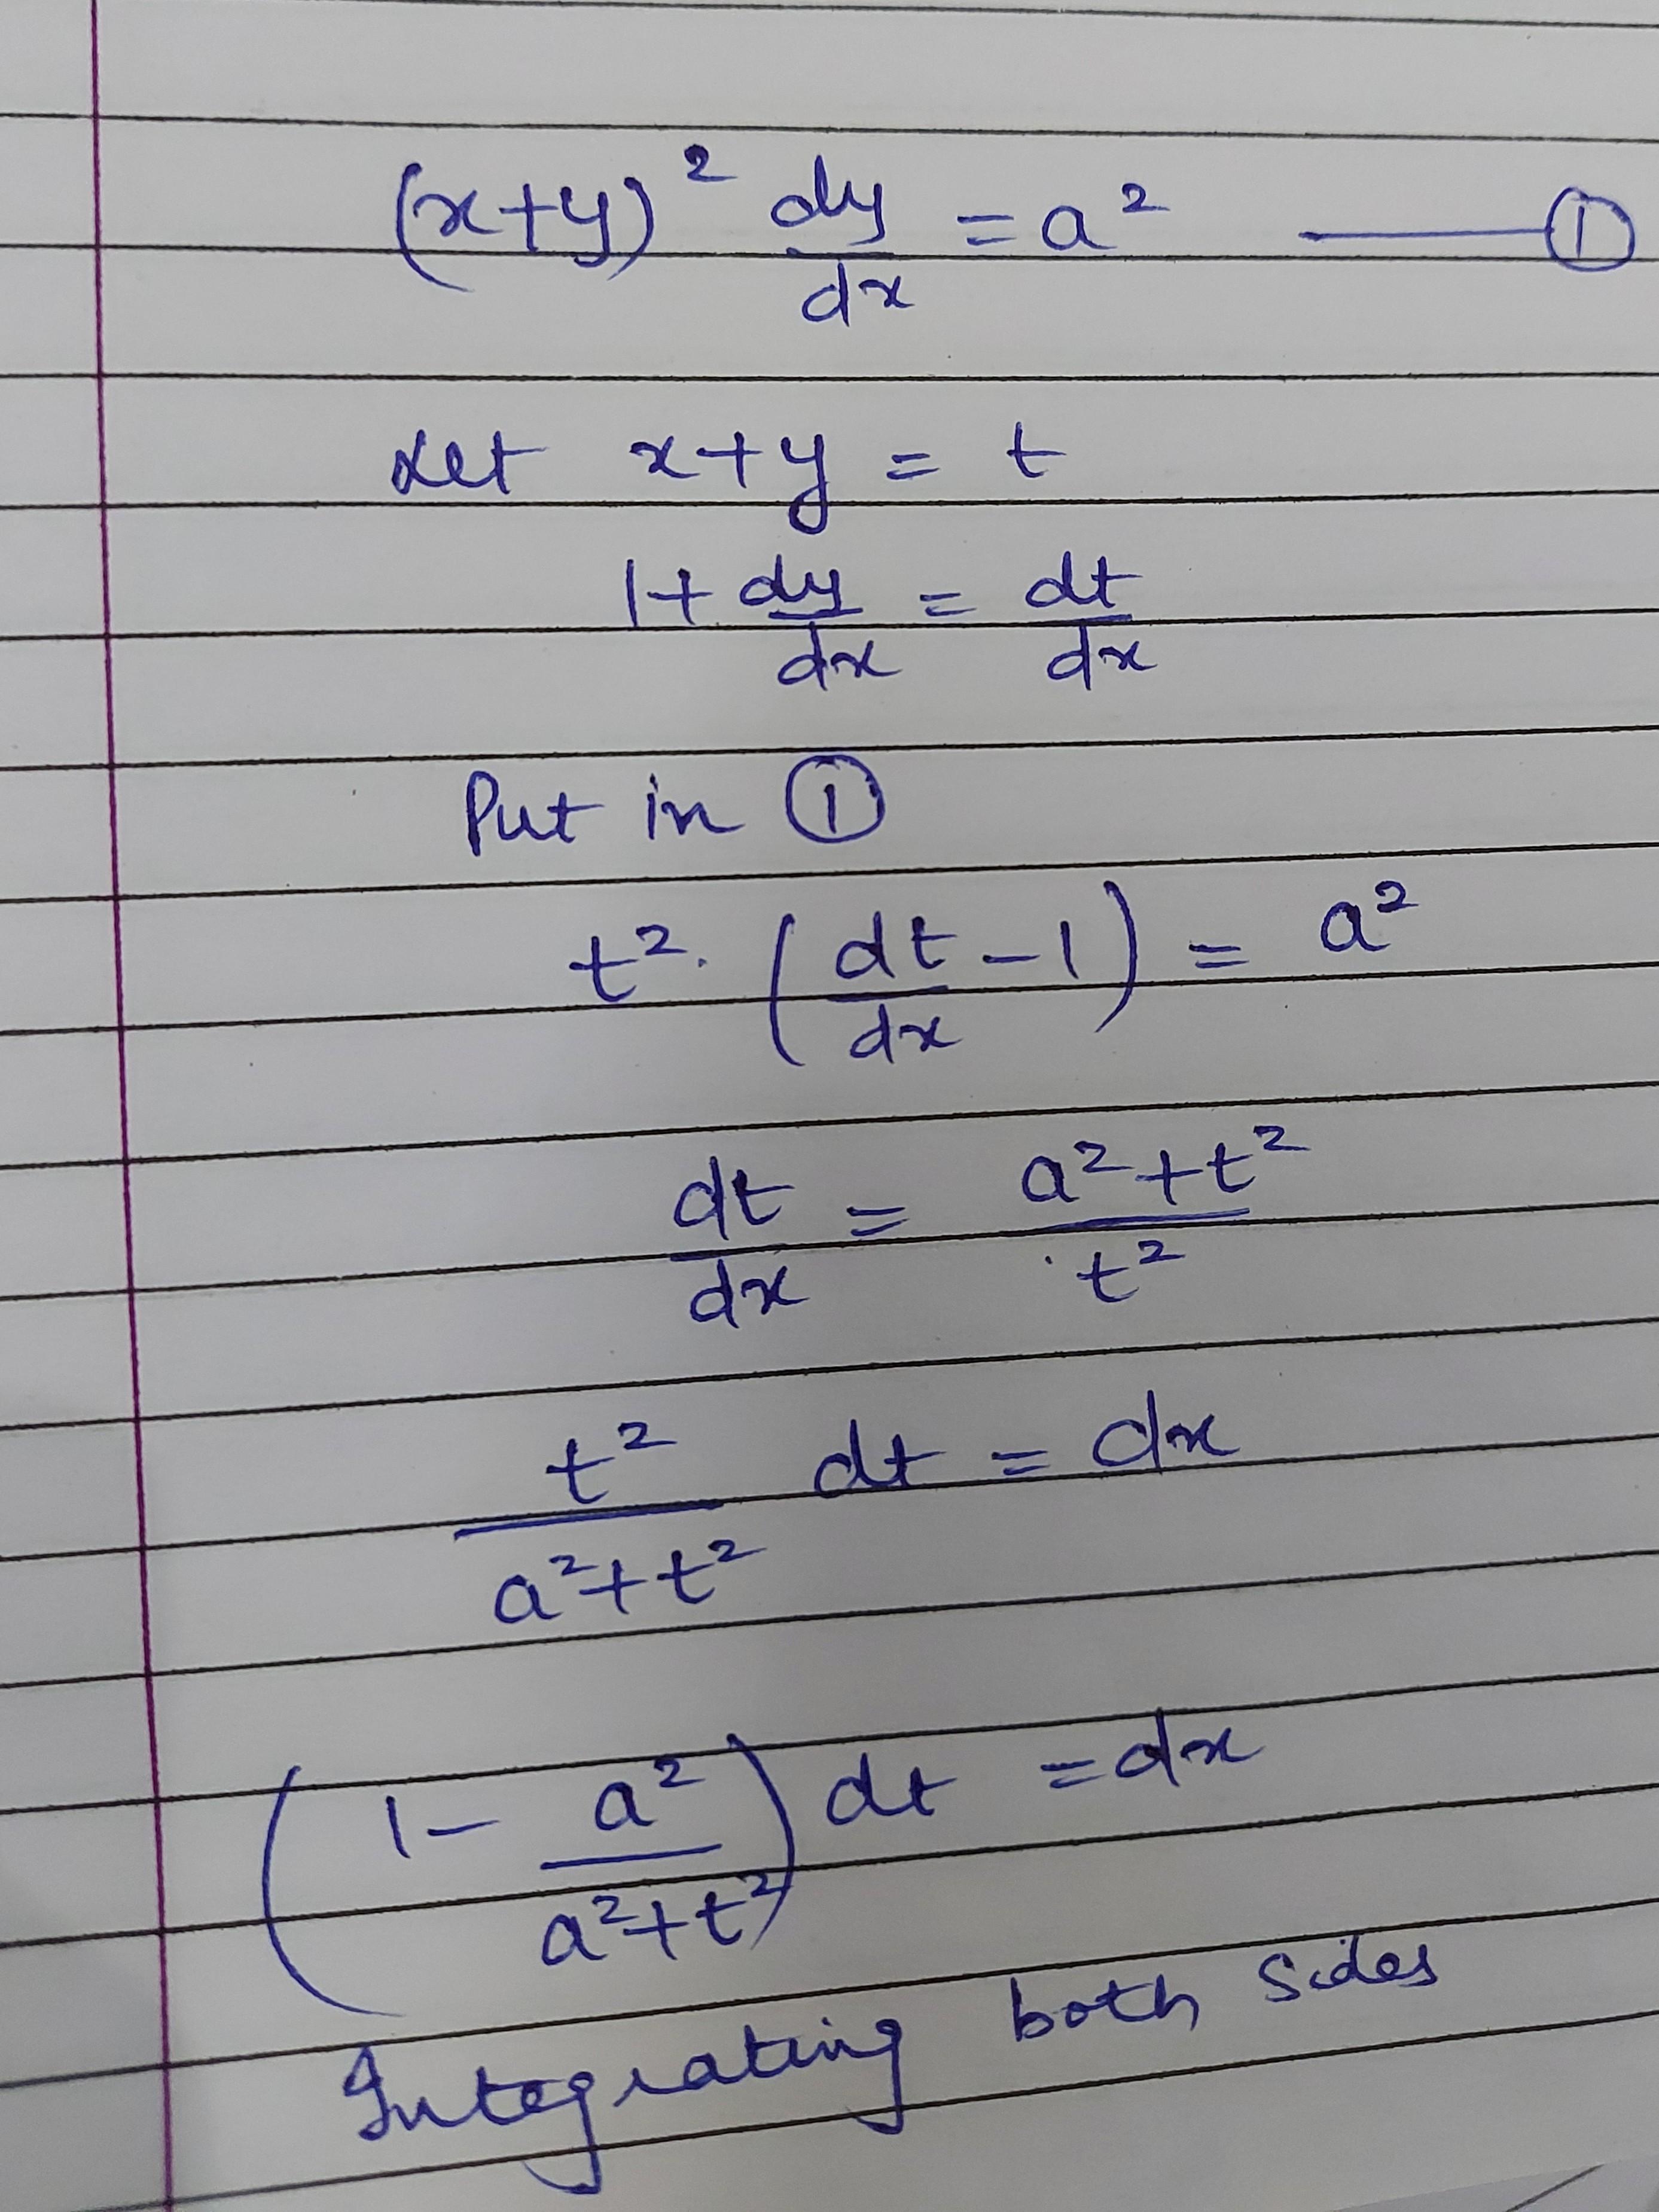 (x+y)² dy/dx = a² —— ①
Let x+y = t
1+ dy/dx = dt/dx
Put in ①
t². (dt/dx - 1) = a²
dt/dx = (a²+t²)/t²
t²/(a²+t²) dt = dx
(1 - a²/(a²+t²)) dt = dx
Integrating both sides